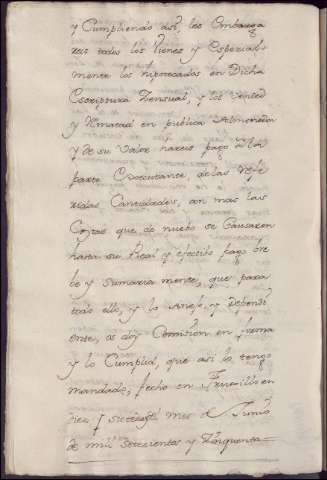 y Cumpliendo asi, les Embarga
reis todos los vienes y Especial-
mente los hipotecados en Dicha
Escriptura Zensual, y los Vended
y Rematad en publica Almoneda
y de su Valor hareis pago a la
parte Executante de las refe-
ridas Cantidades, con mas las
Costas que de nuebo se Causaren
hasta su Real y efectibo pago bre
be y Sumaria mente, que para
todo ello, y lo Anejo, y Depend
ente, os doy Comision en forma
y lo Cumplid, que asi lo tengo
mandado, fecho en Truxillo en
diez y siete mes de Junio
de mill Setecientos y Zinquenta